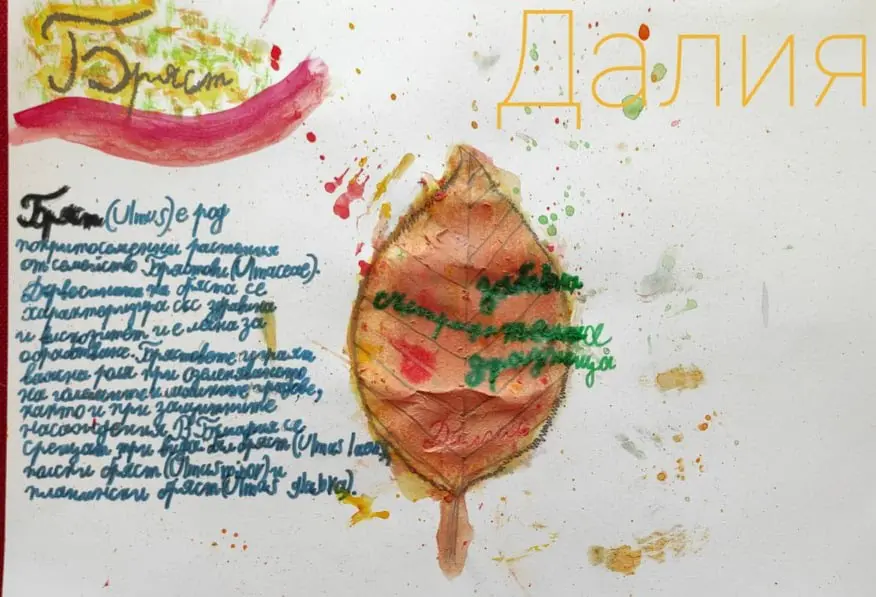 Бряст
Далия
Бряст (Ulmus) е род
покритосеменни растения
от семейство Брястови (Ulmaceae).
Дървесината на бряста се
характеризира със здравина
и и е лека за
обработване. Брястовете играят
важна роля при озеленяването
на големите и малките градове,
както и при защитните
насаждения. В България се
срещат три вида бял бряст (Ulmus laevis),
полски бряст (Ulmus minor) и
планински бряст (Ulmus glabra).